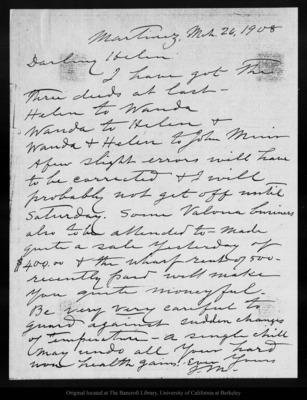 Martinez, Mch 26, 1908
Darling Helen
I have got the
three deeds at last -
Helen to Wanda
Wanda to Helen &
Wanda & Helen to John Muir
A few slight errors will have
to be corrected & I will
probably not get off until
Saturday. Some Valona business
also to be attended to - Made
quite a sale yesterday of
$400.00 & the wharf rent of 500-
recently paid will make
you quite moneyful.
Be very very careful to
guard against sudden changes
of temperature - a single chill
may undo all your hard
won health gains. Ever Yours
J.M.
Original located at The Bancroft Library, University of California at Berkeley